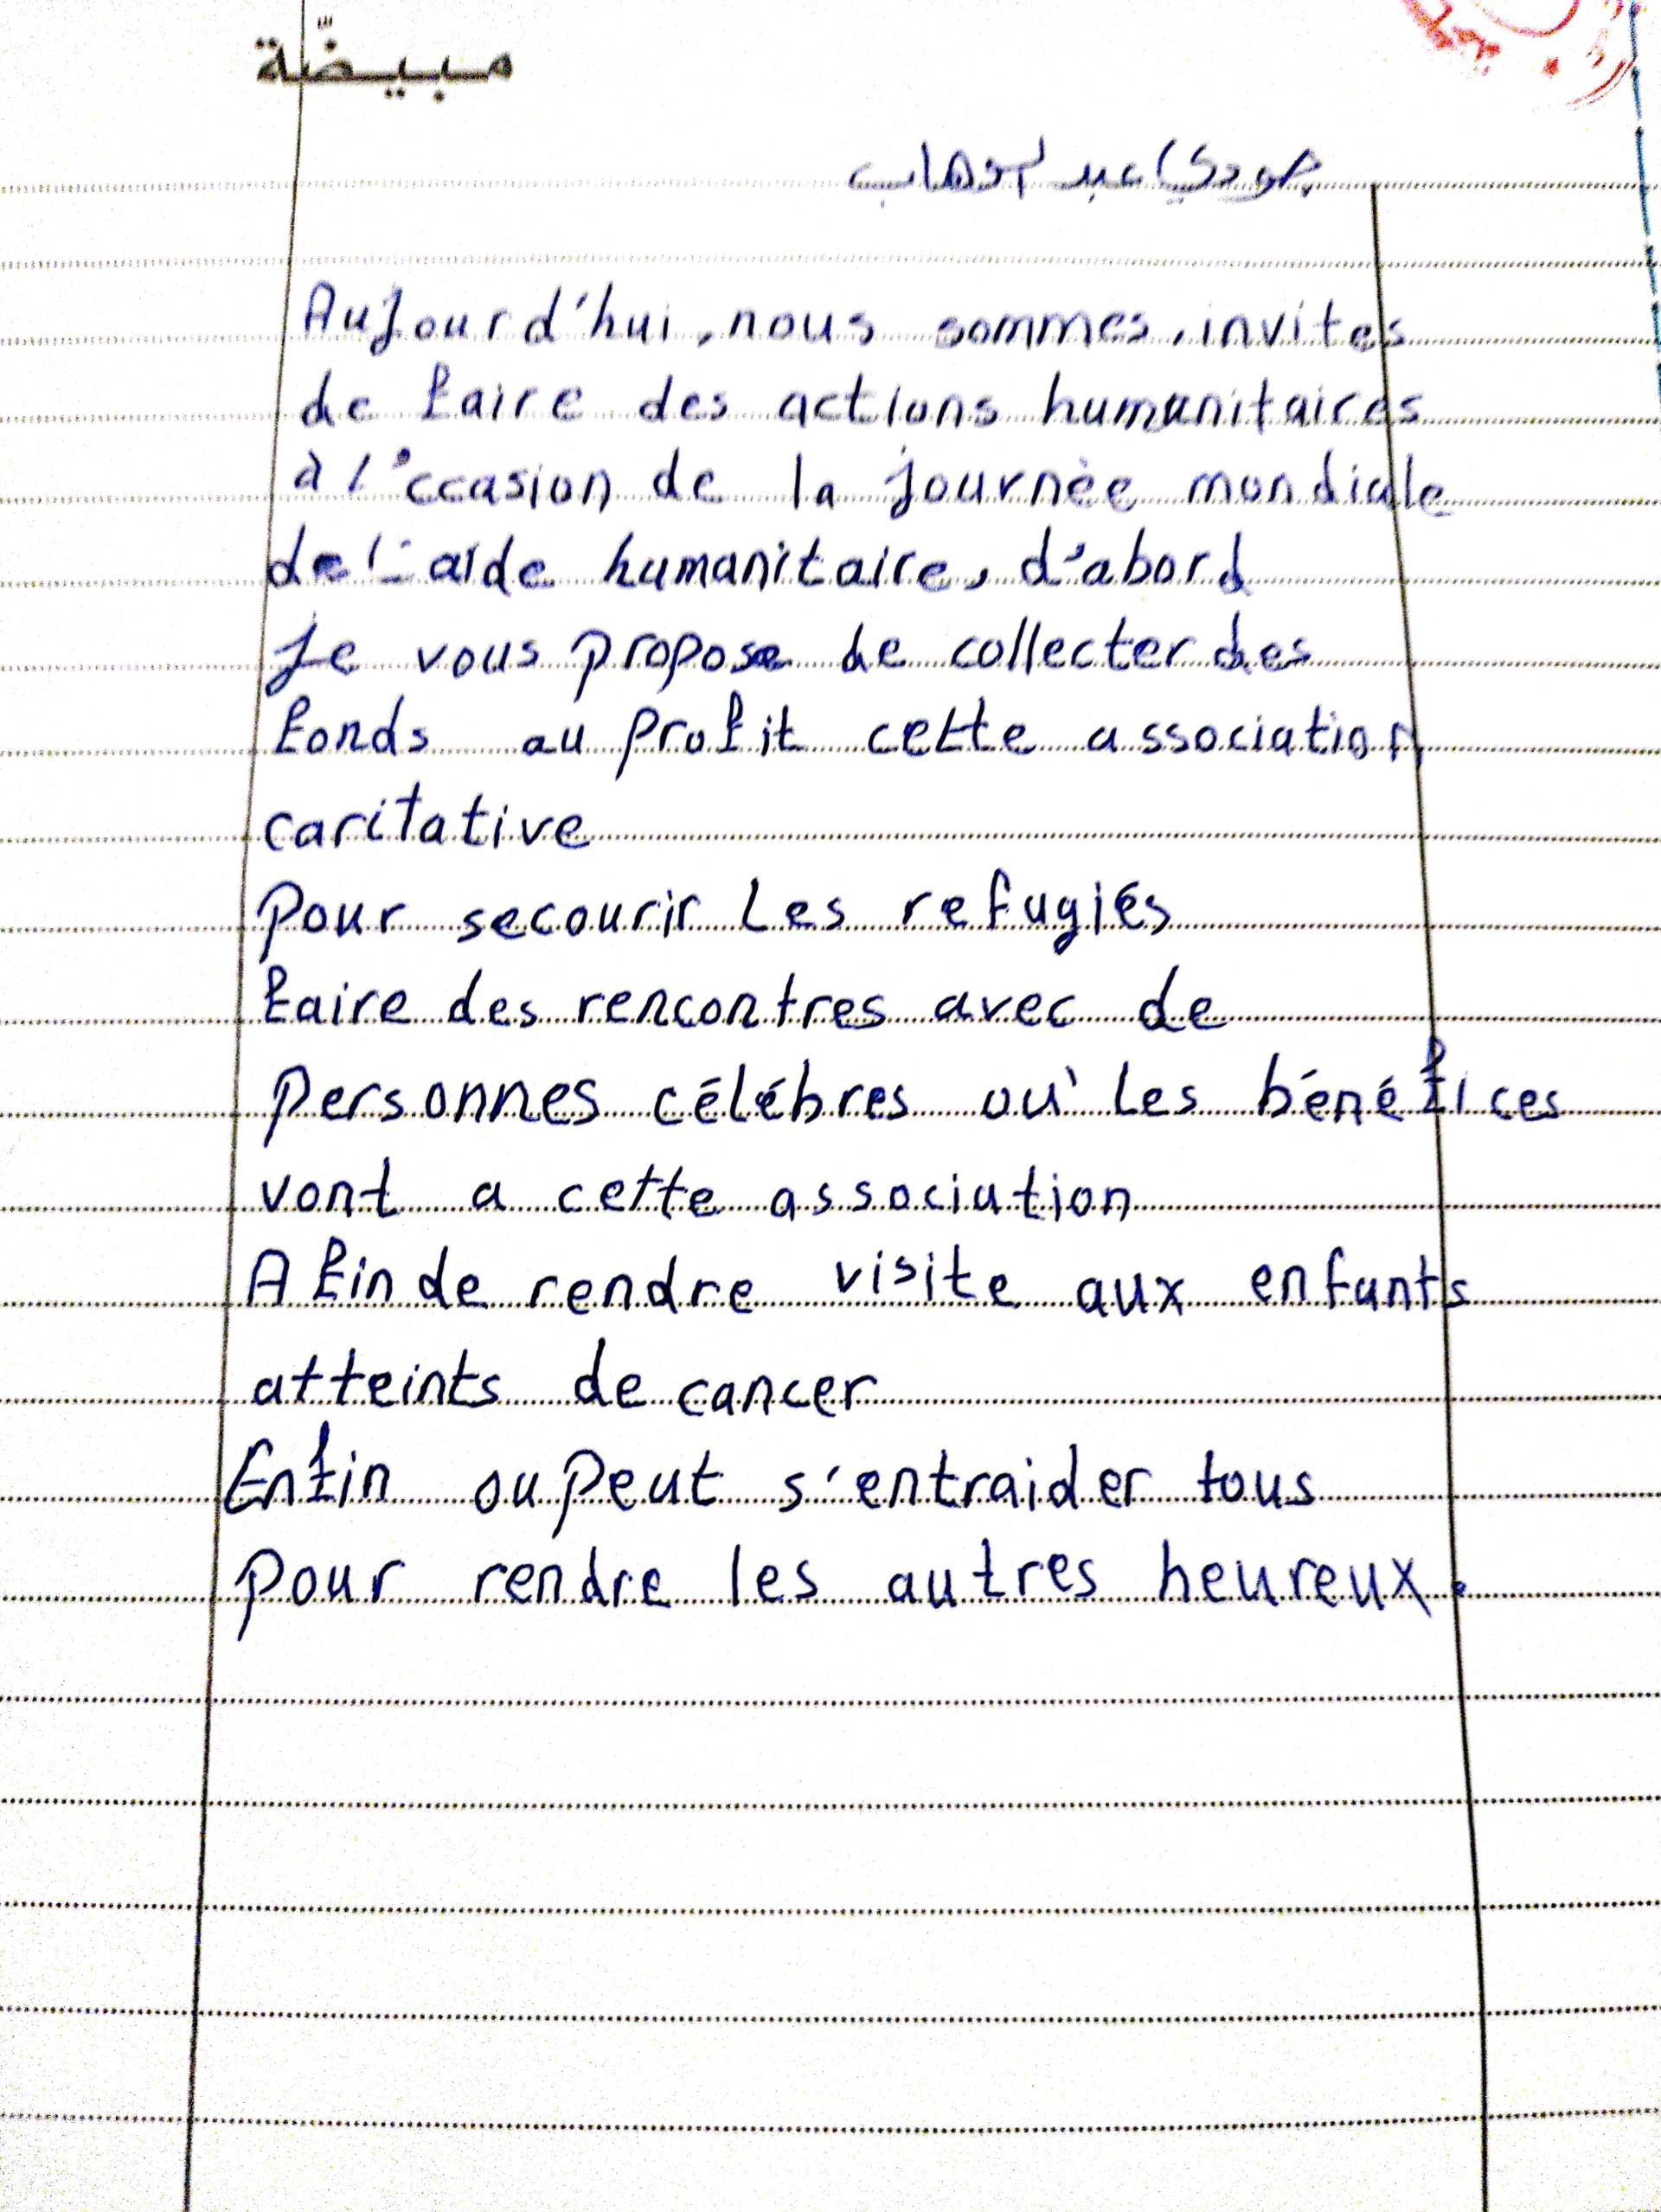 مبيضّة
جودي عبد الوهاب
Aujourd'hui, nous sommes, invites
de faire des actions humanitaires
à l'occasion de la journèe mondiale
de l'aide humanitaire, d'abord
je vous propose de collecter des
fonds au profit cette association
caritative
pour secourir les refugiés
faire des rencontres avec de
personnes célébres où les bénéfices
vont a cette association
A fin de rendre visite aux enfants
atteints de cancer
Enfin ou peut s'entraider tous
pour rendre les autres heureux.